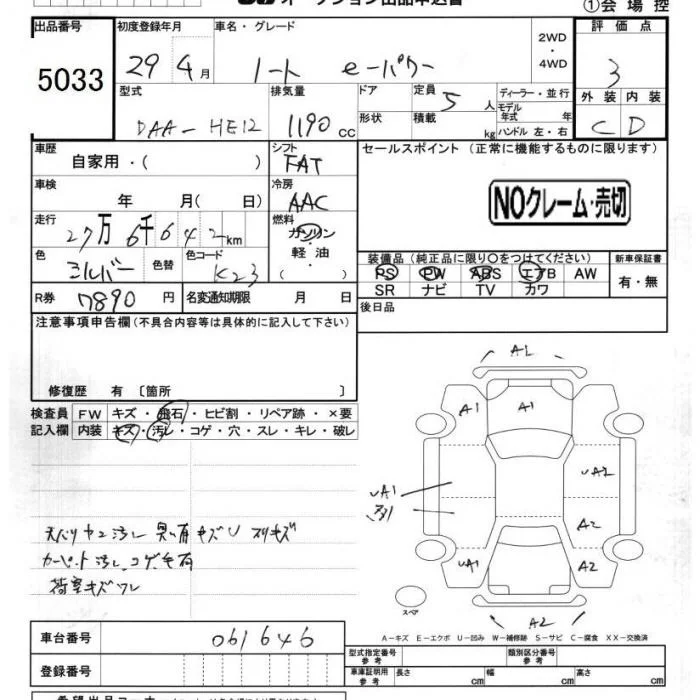 オークション出品申込書
①会場控
出品番号 5033
初度登録年月 29 年 4 月
車名・グレード ノート e-パワー
2WD・4WD
評価点 3
外装 C 内装 D
型式 DAA-HE12
排気量 1190 cc
ドア 形状
定員 5 人
積載 kg
ディーラー・並行
モデル年式 年
ハンドル 左・右
車歴 自家用・( )
シフト FAT
セールスポイント (正常に機能するものに限ります)
車検 年 月( 日)
冷房 AAC
NOクレーム・売切
走行 27万6千642km
燃料 ガソリン・軽油・( )
色 シルバー 色替 色コード K23
装備品(純正品に限り○をつけてください) 新車保証書
PS PW ABS エアB AW 有・無
SR ナビ TV カワ
R券 7890 円 名変通知期限 月 日
後日品
注意事項申告欄(不具合内容等は具体的に記入して下さい)
修復歴 有 〔箇所 〕
検査員記入欄
FW キズ・飛石・ヒビ割・リペア跡・×要
内装 キズ・汚レ・コゲ・穴・スレ・キレ・破レ
A1
A1 A1
UA1
UA2
A2
UA1 A2
A2
スペア
カーペット汚レ コゲ 有
荷室キズワレ
A-キズ E-エクボ U-凹み W-補修跡 S-サビ C-腐食 XX-交換済
車台番号 061646
型式指定番号 参考 類別区分番号 参考
登録番号
車庫証明用 参考 長さ cm 幅 cm 高さ cm